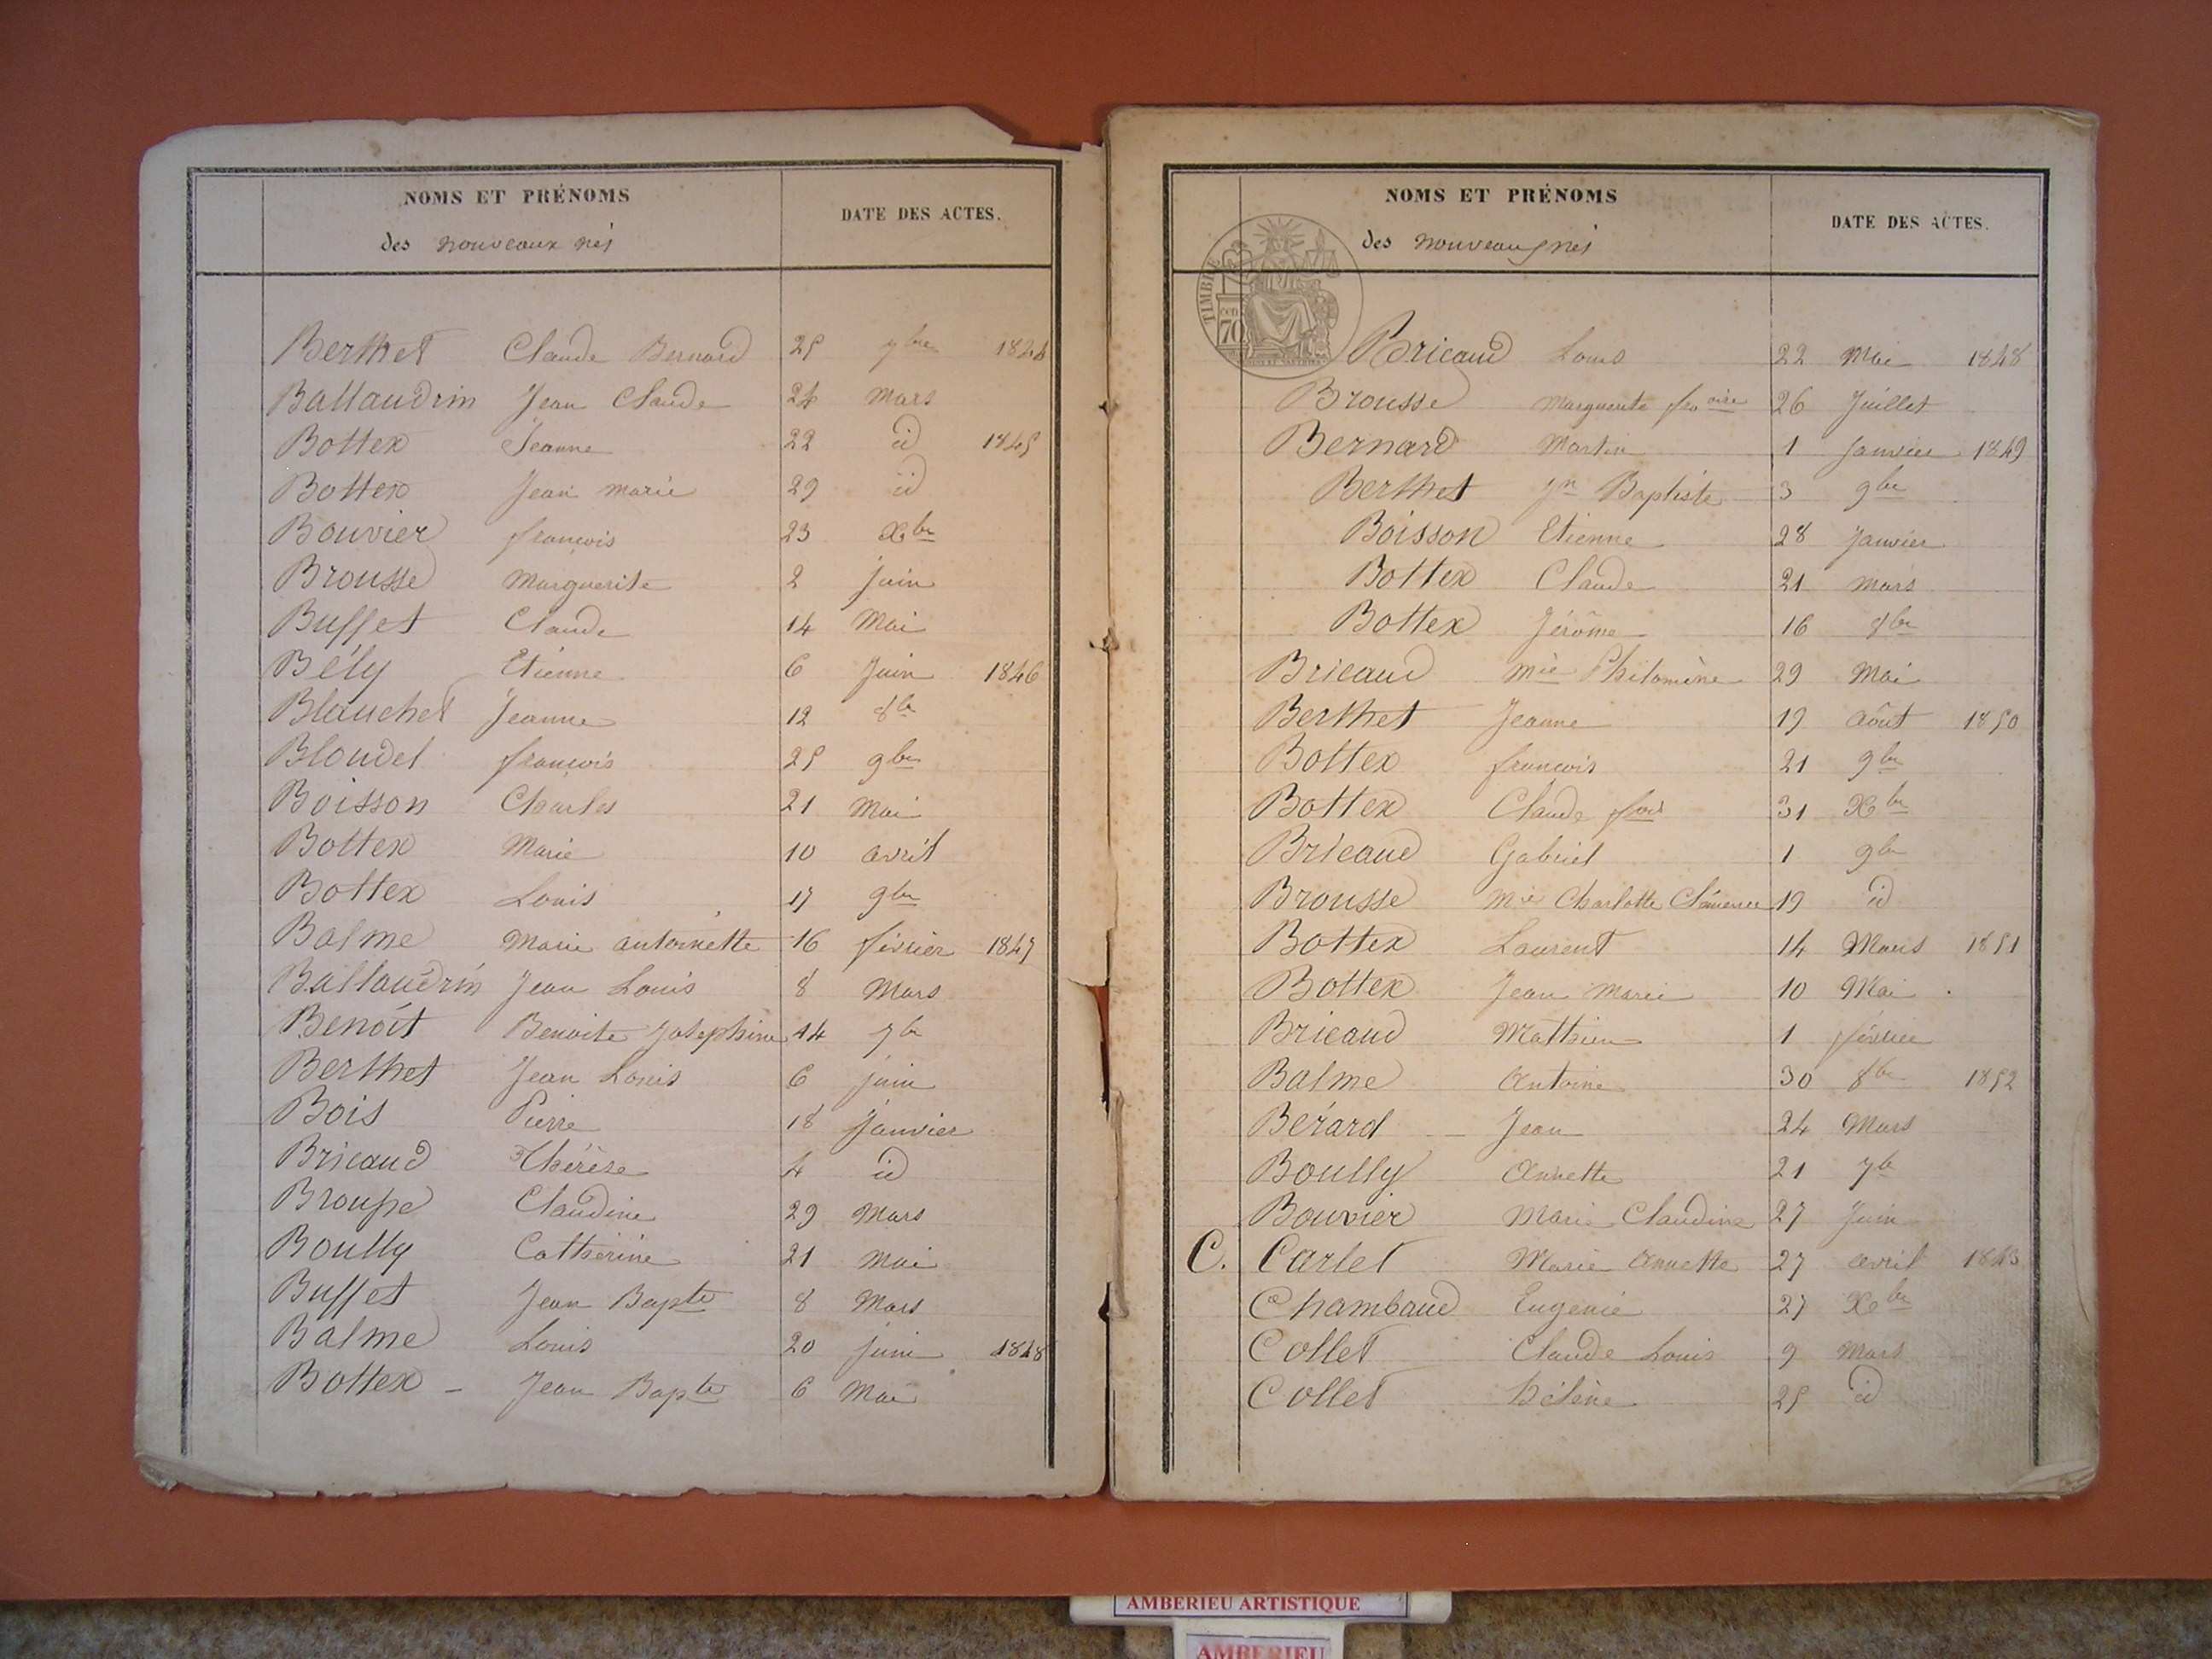 NOMS ET PRÉNOMS
DATE DES ACTES.
des nouveaux nés
Berthet Claude Bernard 25 7bre 1844
Ballaudrin Jean Claude 24 mars
Bottex Jeanne 22 id 1845
Bottex Jean marie 29 id
Bouvier françois 23 Xbre
Brousse Marguerite 2 juin
Buffet Claude 14 Mai
Bély Etienne 6 Juin 1846
Blanchet Jeanne 12 8bre
Blondel françois 25 9bre
Boisson Charles 21 Mai
Bottex Marie 10 avril
Bottex Louis 17 9bre
Balme Marie antoinette 16 février 1847
Ballaudrin Jean Louis 8 Mars
Benoit Benoite Josephine 14 7bre
Berthet Jean Louis 6 juin
Bois Pierre 18 janvier
Bricaud Thérèse 4 id
Brousse Claudine 29 Mars
Boully Catherine 21 Mai
Buffet Jean Bapte 8 Mars
Balme Louis 20 juin 1848
Bottex - Jean Bapte 6 Mai
NOMS ET PRÉNOMS
DATE DES ACTES.
des nouveaux nés
TIMBRE
70
Bricaud Louis 22 Mai 1848
Brousse Marguerite 26 Juillet
Bernard Martin 1 Janvier 1849
Berthet Jn Baptiste 3 9bre
Boisson Etienne 28 Janvier
Bottex Claude 21 mars
Bottex Jérôme 16 8bre
Bricaud Mie Philomène 29 Mai
Berthet Jeanne 19 août 1850
Bottex françois 21 9bre
Bottex Claude fois 31 Xbre
Bricaud Gabriel 1 9bre
Brousse Mie Charlotte Clémence 19 id
Bottex Laurent 14 Mars 1851
Bottex Jean Marie 10 Mai
Bricaud Matthieu 1 février
Balme Antoine 30 8bre 1852
Bérard - Jean 24 Mars
Boully Annette 21 7bre
Bouvier Marie Claudine 27 Juin
C. Carlet Marie Annette 27 avril 1843
Chambaud Eugenie 27 Xbre
Collet Claude Louis 9 Mars
Collet Hélène 25 id
AMBERIEU ARTISTIQUE
AMBERIEU